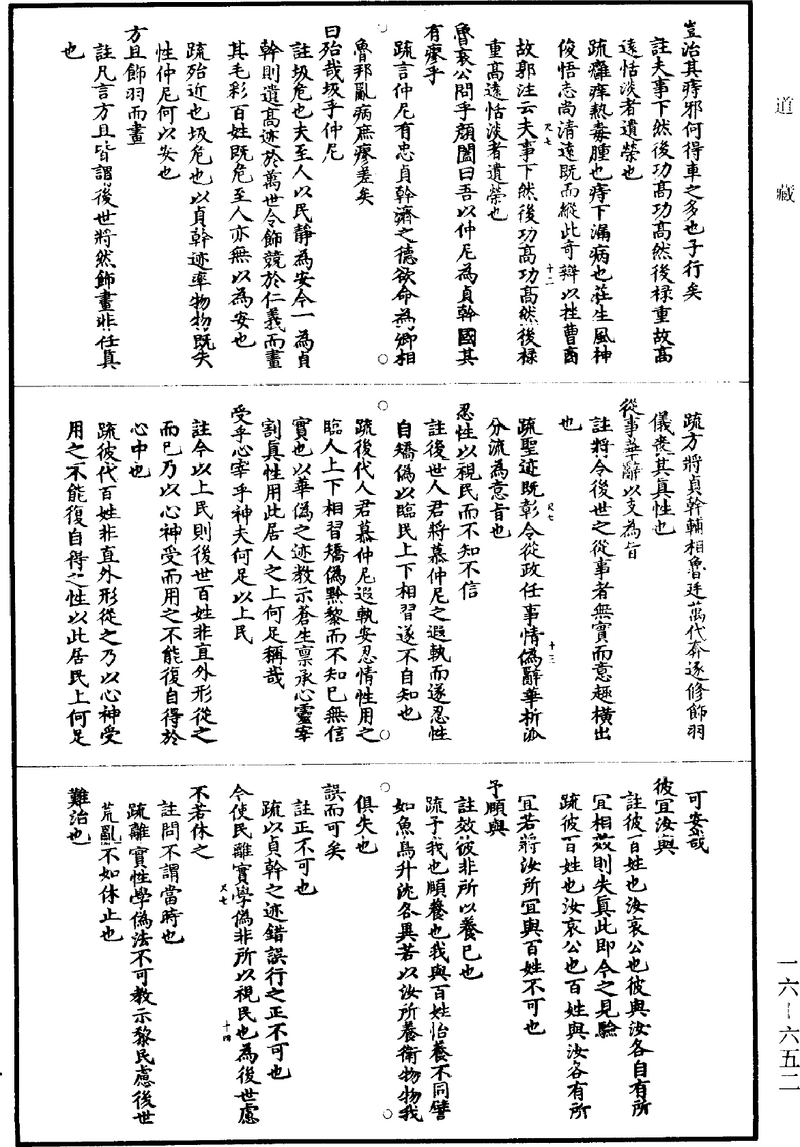 道藏
豈治其痔邪何得車之多也子行矣
註夫事下然後功高功高然後祿重故高
遠恬淡者遺榮也
疏癰痤熱毒腫也痔下漏病也莊生風神
俊悟志尚清遠既而縱此奇辯以挫曹商
故郭注云夫事下然後功高功高然後祿
重高遠恬淡者遺榮也
魯哀公問乎顏闔曰吾以仲尼為貞幹國其
有瘳乎
疏言仲尼有忠貞幹濟之德欲命為卿相
魯邦亂病庶瘳差矣
曰殆哉圾乎仲尼
註圾危也夫至人以民靜為安今一為貞
幹則遺高迹於萬世令飾競於仁義而畫
其毛彩百姓既危至人亦無以為安也
疏殆近也圾危也以貞幹迹率物物既失
性仲尼何以安也
方且飾羽而畫
註凡言方且皆謂後世將然飾畫非任真
也
疏方將貞幹輔相魯廷萬代奔逐修飾羽
儀喪其真性也
從事華辭以支為旨
註將令後世之從事者無實而意趣橫出
也
疏聖迹既彰令從政任事情偽辭華析派
分流為意旨也
忍性以視民而不知不信
註後世人君將慕仲尼之遐軌而遂忍性
自矯偽以臨民上下相習遂不自知也
疏後代人君慕仲尼遐軌安忍情性用之
臨人上下相習矯偽黔黎而不知已無信
實也以華偽之迹教示蒼生禀承心靈宰
割真性用此居人之上何足稱哉
受乎心宰乎神夫何足以上民
註今以上民則後世百姓非直外形從之
而已乃以心神受而用之不能復自得於
心中也
疏彼代百姓非直外形從之乃以心神受
用之不能復自得之性以此居民上何足
可安哉
彼宜汝與
註彼百姓也汝哀公也彼與汝各自有所
宜相效則失真此即今之見驗
疏彼百姓也汝哀公也百姓與汝各有所
宜若將汝所宜與百姓不可也
予頤與
註效彼非所以養己也
疏予我也頤養也我與百姓怡養不同譬
如魚鳥升沈各異若以汝所養衛物物我
俱失也
誤而可矣
註正不可也
疏以貞幹之迹錯誤行之正不可也
今使民離實學偽非所以視民也為後世慮
不若休之
註問不謂當時也
疏離實性學偽法不可教示黎民慮後世
荒亂不如休止也
難治也
尺七 十二
尺七 十三
尺七 十四
一六—六五二